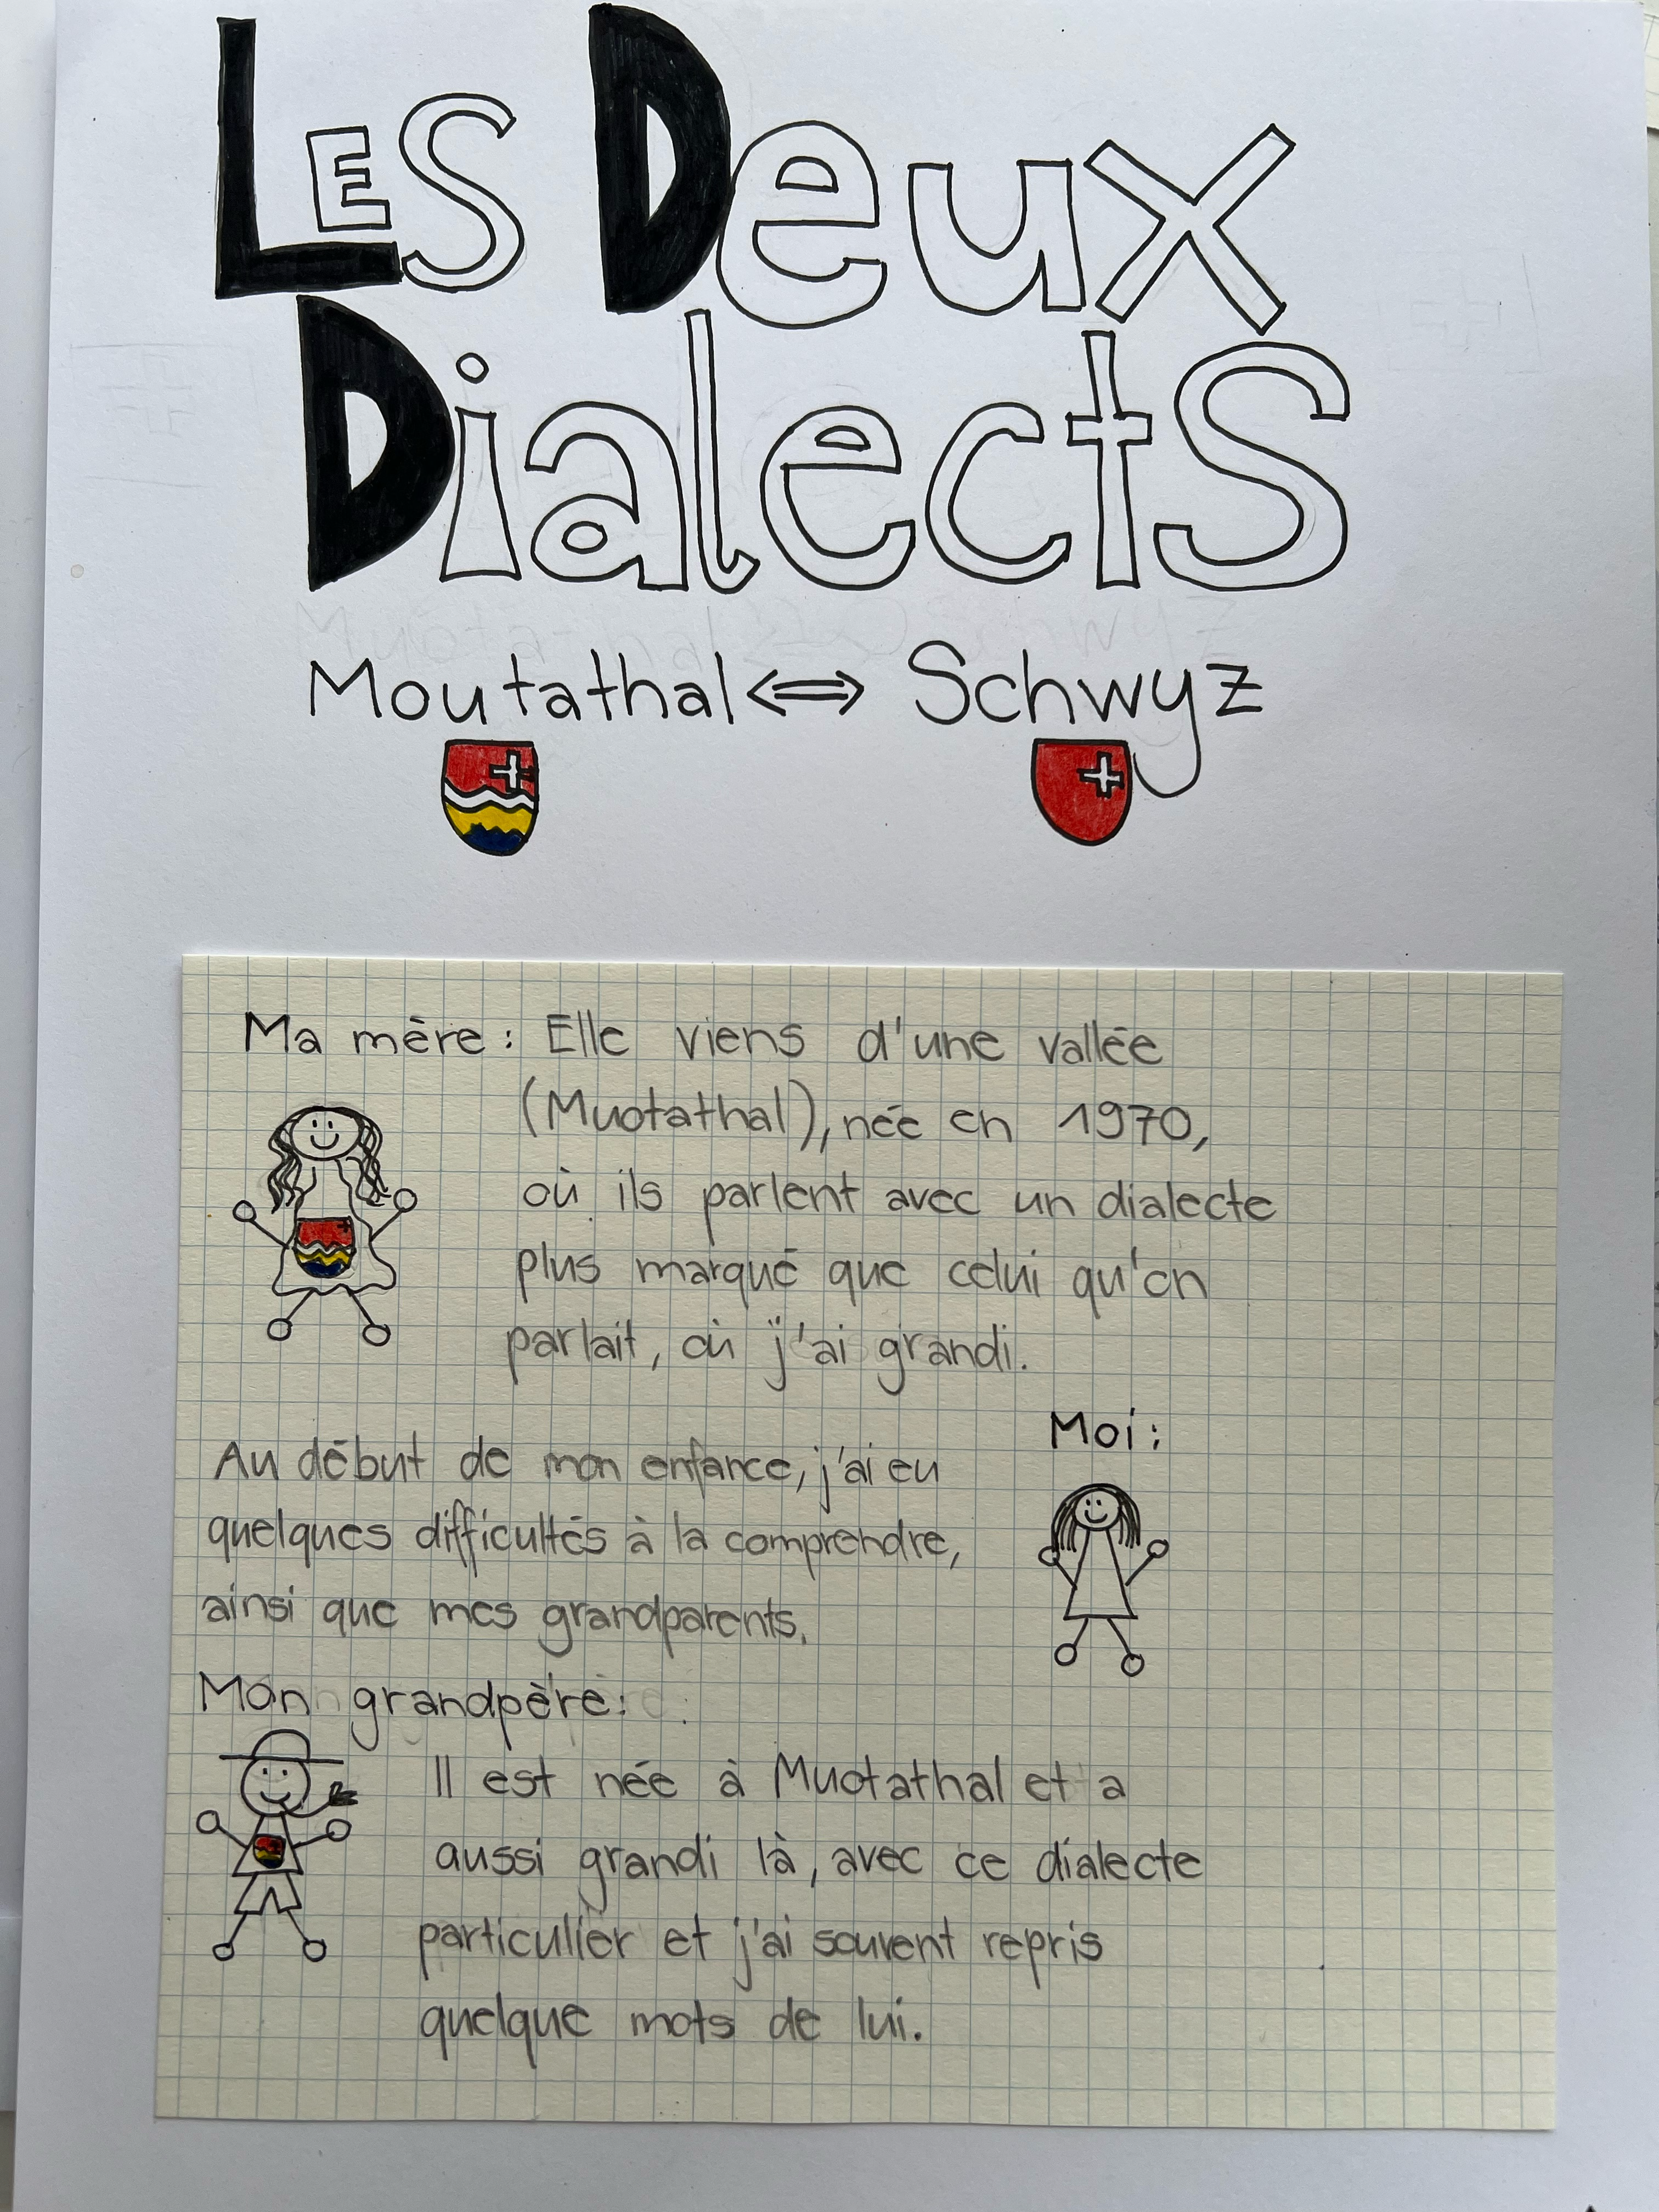 LES Deux
Dialects
Moutathal <=> Schwyz
Ma mère: Elle viens d'une vallée
(Muotathal), née en 1970,
où ils parlent avec un dialecte
plus marqué que celui qu'on
parlait, où j'ai grandi.
Moi:
Au début de mon enfance, j'ai eu
quelques difficultés à la comprendre,
ainsi que mes grandparents.
Mon grandpère:
Il est née à Muotathal et a
aussi grandi là, avec ce dialecte
particulier et j'ai souvent repris
quelque mots de lui.